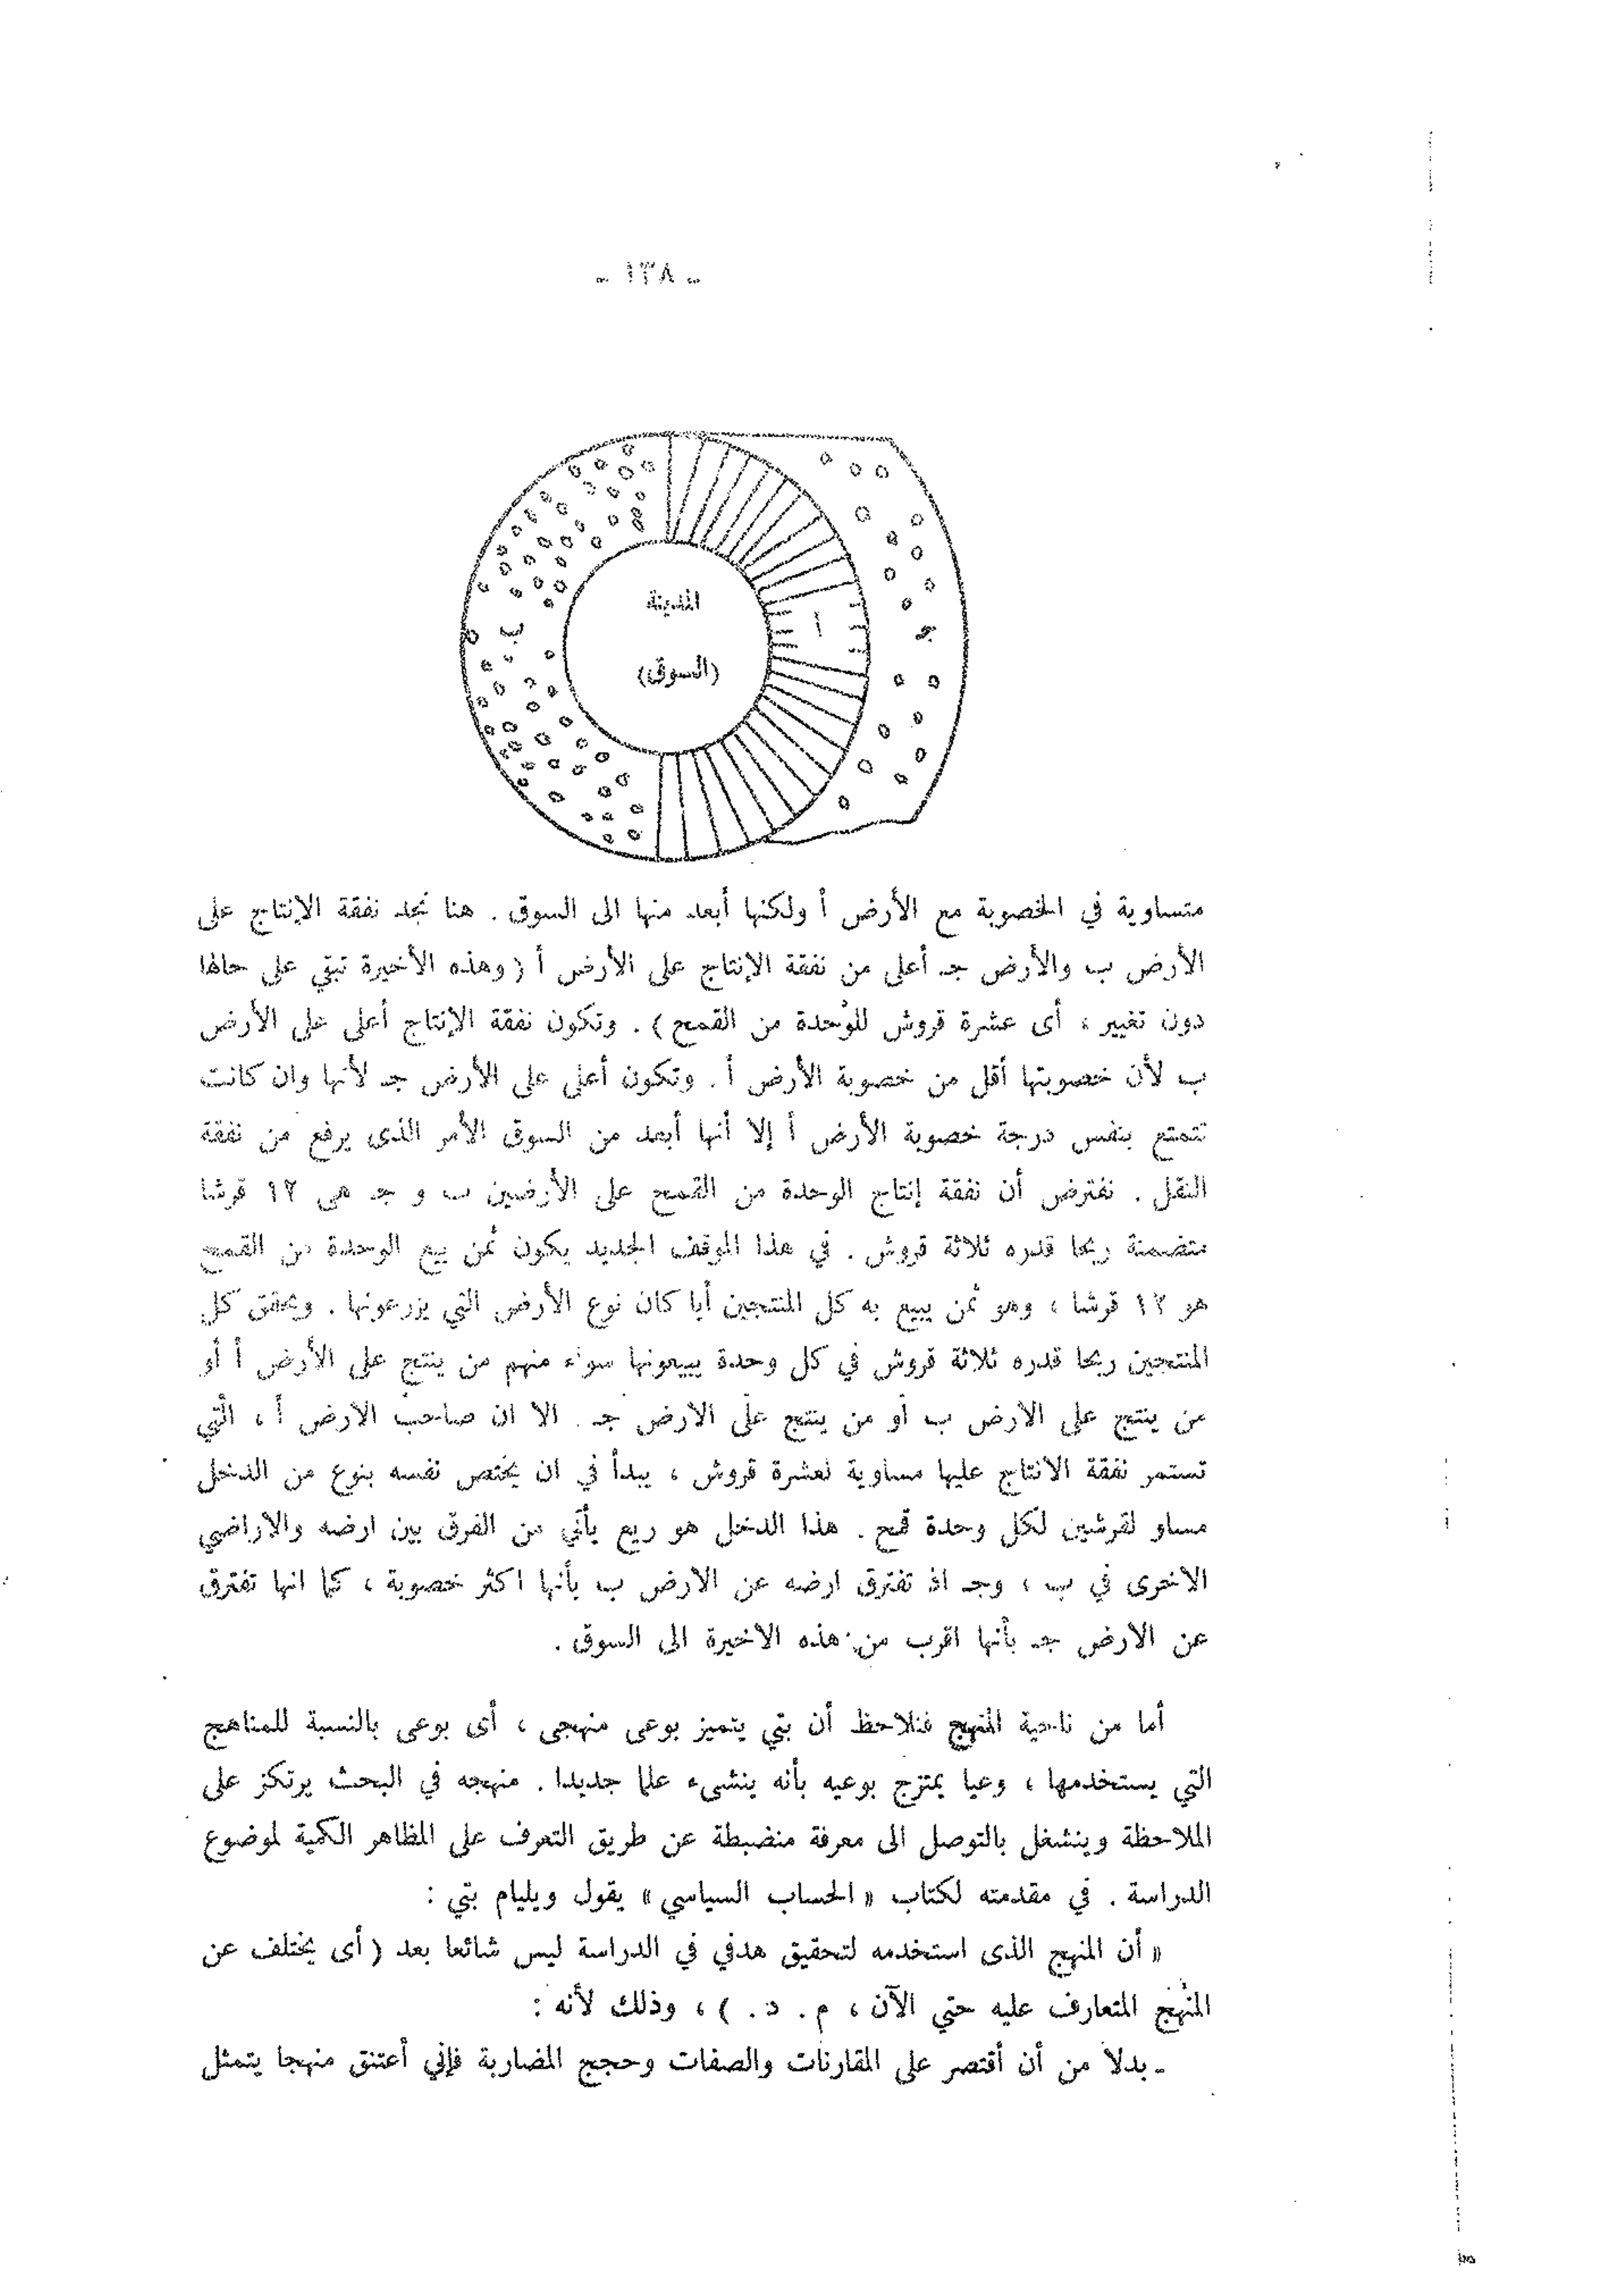 - ١٣٨ -
المدينة
(السوق)
أ
ب
جـ
متساوية في الخصوبة مع الأرض أ ولكنها أبعد منها الى السوق . هنا نجد نفقة الإنتاج على
الأرض ب والأرض جـ أعلى من نفقة الإنتاج على الأرض أ ( وهذه الأخيرة تبقي على حالها
دون تغيير ، أى عشرة قروش للوحدة من القمح ) . وتكون نفقة الإنتاج أعلى على الأرض
ب لأن خصوبتها أقل من خصوبة الأرض أ . وتكون أعلى على الأرض جـ لأنها وان كانت
تتمتع بنفس درجة خصوبة الأرض أ إلا أنها أبعد من السوق الأمر الذى يرفع من نفقة
النقل . نفترض أن نفقة إنتاج الوحدة من القمح على الأرضين ب و جـ هى ١٢ قرشا
متضمنة ربحا قدره ثلاثة قروش . في هذا الموقف الجديد يكون ثمن بيع الوحدة من القمح
هو ١٢ قرشا ، وهو ثمن يبيع به كل المنتجين أيا كان نوع الأرض التي يزرعونها . ويحقق كل
المنتجين ربحا قدره ثلاثة قروش في كل وحدة يبيعونها سواء منهم من ينتج على الأرض أ أو
من ينتج على الارض ب أو من ينتج على الارض جـ . الا ان صاحب الارض أ ، التي
تستمر نفقة الانتاج عليها مساوية لعشرة قروش ، يبدأ في ان يختص نفسه بنوع من الدخل
مساو لقرشين لكل وحدة قمح . هذا الدخل هو ريع يأتي من الفرق بين ارضه والاراضي
الاخرى في ب ، وجـ اذ تفترق ارضه عن الارض ب بأنها اكثر خصوبة ، كما انها تفترق
عن الارض جـ بأنها اقرب من هذه الاخيرة الى السوق .
أما من ناحية المنهج فنلاحظ أن بتي يتميز بوعى منهجى ، أى بوعى بالنسبة للمناهج
التي يستخدمها ، وعيا يمتزج بوعيه بأنه ينشىء علما جديدا . منهجه في البحث يرتكز على
الملاحظة وينشغل بالتوصل الى معرفة منضبطة عن طريق التعرف على المظاهر الكمية لموضوع
الدراسة . في مقدمته لكتاب « الحساب السياسي » يقول ويليام بتي :
« أن المنهج الذى استخدمه لتحقيق هدفي في الدراسة ليس شائعا بعد ( أى يختلف عن
المنهج المتعارف عليه حتي الآن ، م . د . ) ، وذلك لأنه :
- بدلا من أن أقتصر على المقارنات والصفات وحجج المضاربة فإني أعتنق منهجا يتمثل